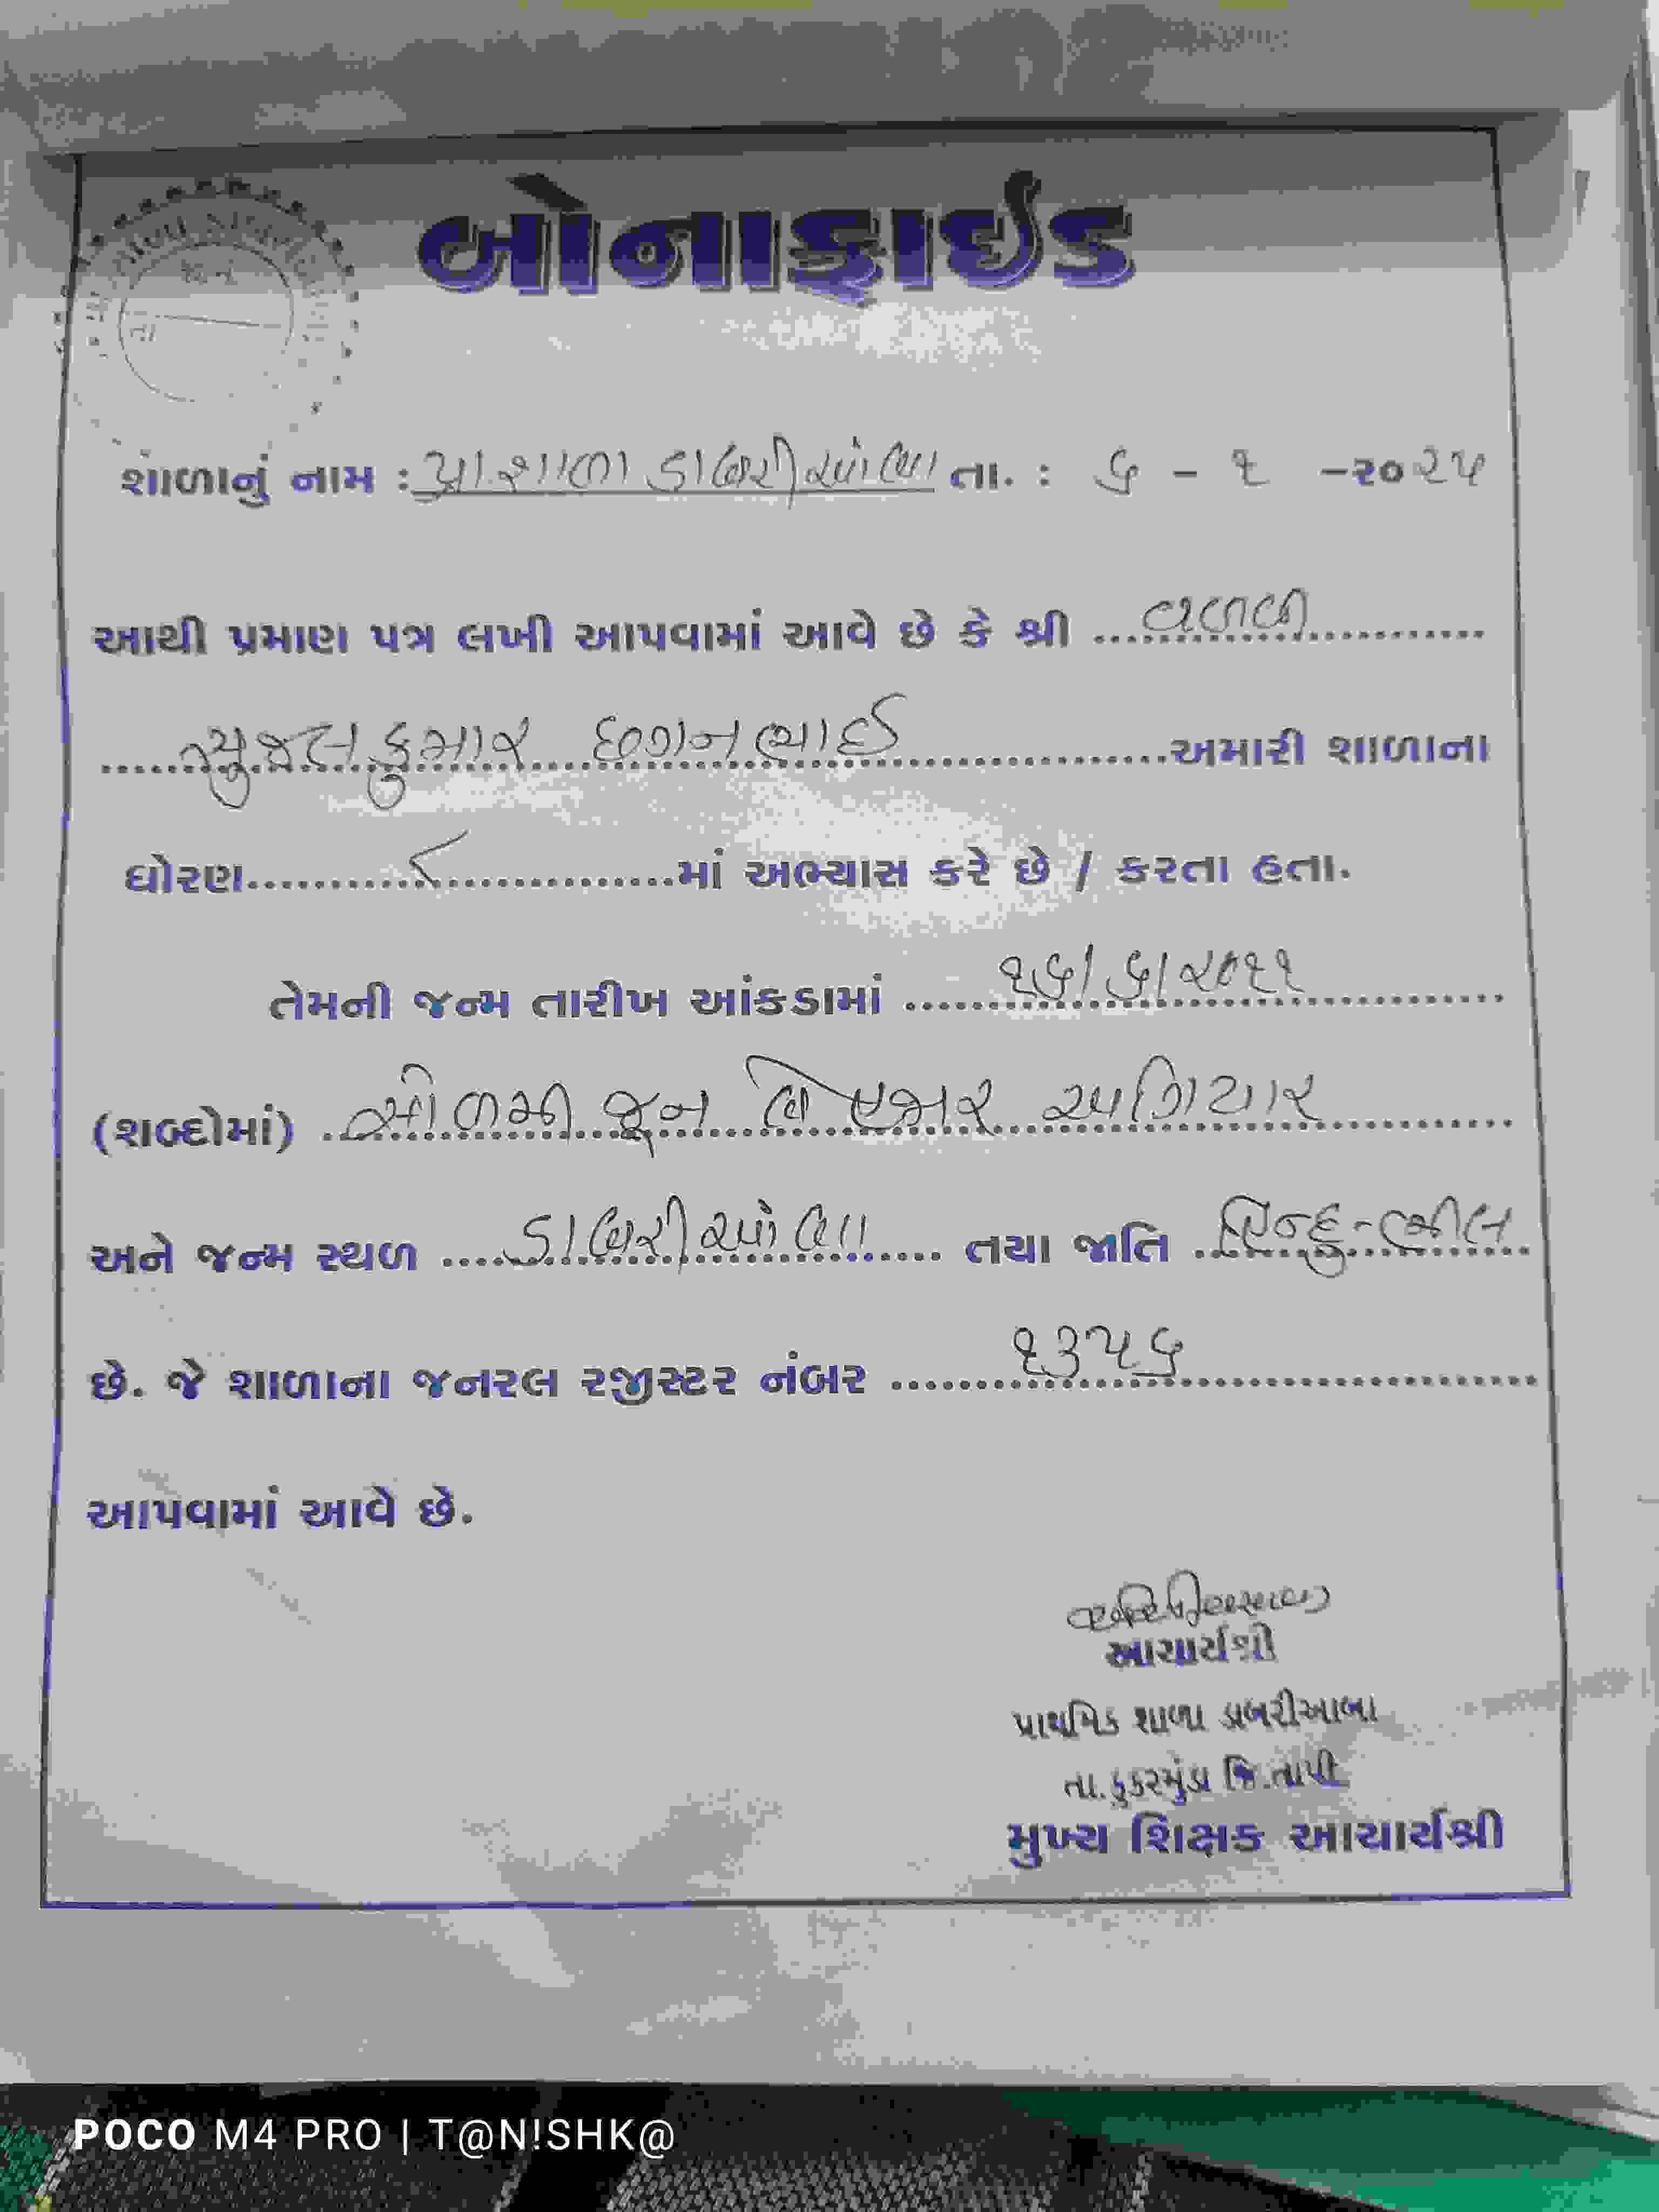 બોનાફાઇડ
શાળાનું નામ : પ્રા.શાળા ડાબરીઆંબા તા. : ૬ - ૧ -૨૦૨૫
આથી પ્રમાણ પત્ર લખી આપવામાં આવે છે કે શ્રી ..... વળવી .....
..... સુજલકુમાર છગનભાઈ ..... અમારી શાળાના
ધોરણ ..... ૮ ..... માં અભ્યાસ કરે છે / કરતા હતા.
તેમની જન્મ તારીખ આંકડામાં ..... ૧૬/૬/૨૦૧૧ .....
(શબ્દોમાં) ..... સોળમી જૂન બે હજાર અગિયાર .....
અને જન્મ સ્થળ ..... ડાબરીઆંબા ..... તથા જાતિ ..... હિન્દુ-ભીલ .....
છે. જે શાળાના જનરલ રજીસ્ટર નંબર ..... ૧૩૫૬ .....
આપવામાં આવે છે.
આચાર્યશ્રી
પ્રાથમિક શાળા ડાબરીઆંબા
તા.કુકરમુંડા જિ.તાપી
મુખ્ય શિક્ષક આચાર્યશ્રી
POCO M4 PRO | T@N!SHK@